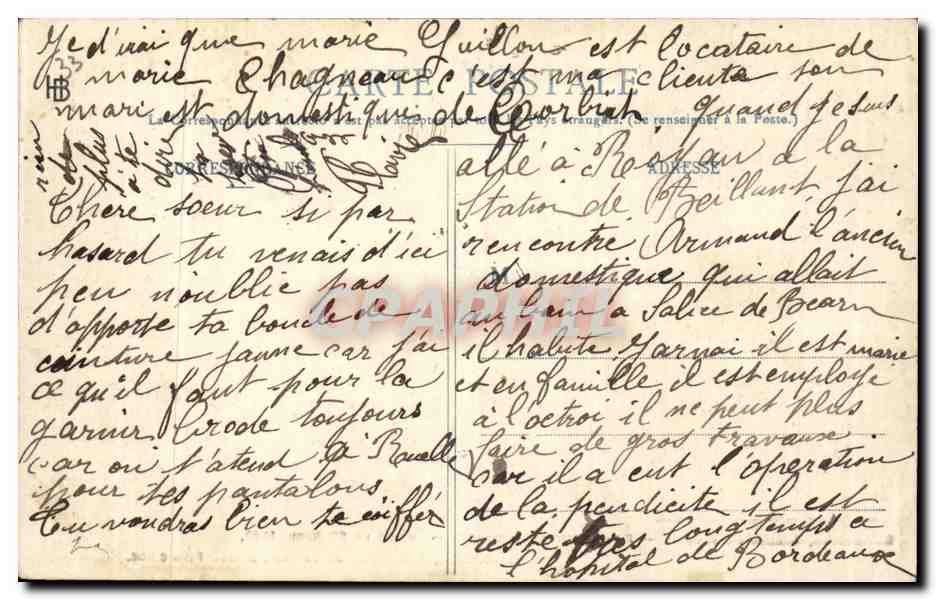 Je d'irai que marie Guillon est locataire de
marie Chagneau c'est ma cliente son
mari est domestique de Corbiat quand je suis
CARTE POSTALE
La Correspondance au recto n'est pas acceptée par tous les pays étrangers. (Se renseigner à la Poste.)
CORRESPONDANCE
ADRESSE
HB
rien
de
plus
à te
Chere soeur si par
hasard tu venais d'ici
peu n'oublie pas
d'apporte ta boucle de
ceinture jaune car j'ai
ce qu'il faut pour la
garnir brode toujours
car on t'atend à Ruelle
pour tes pantalons
Tu voudras bien te coiffer
allé à Royan a la
Station de Beillant j'ai
rencontré Armand l'ancien
domestique qui allait
au bain a Salice de Bearn
il habite Jarnai il est marie
et en famille il est employé
à l'octroi il ne peut plus
faire de gros travaux
car il a eut l'operation
de la pendicite il est
reste tres longtemps a
l'hopital de Bordeaux
M
CPAPHIL